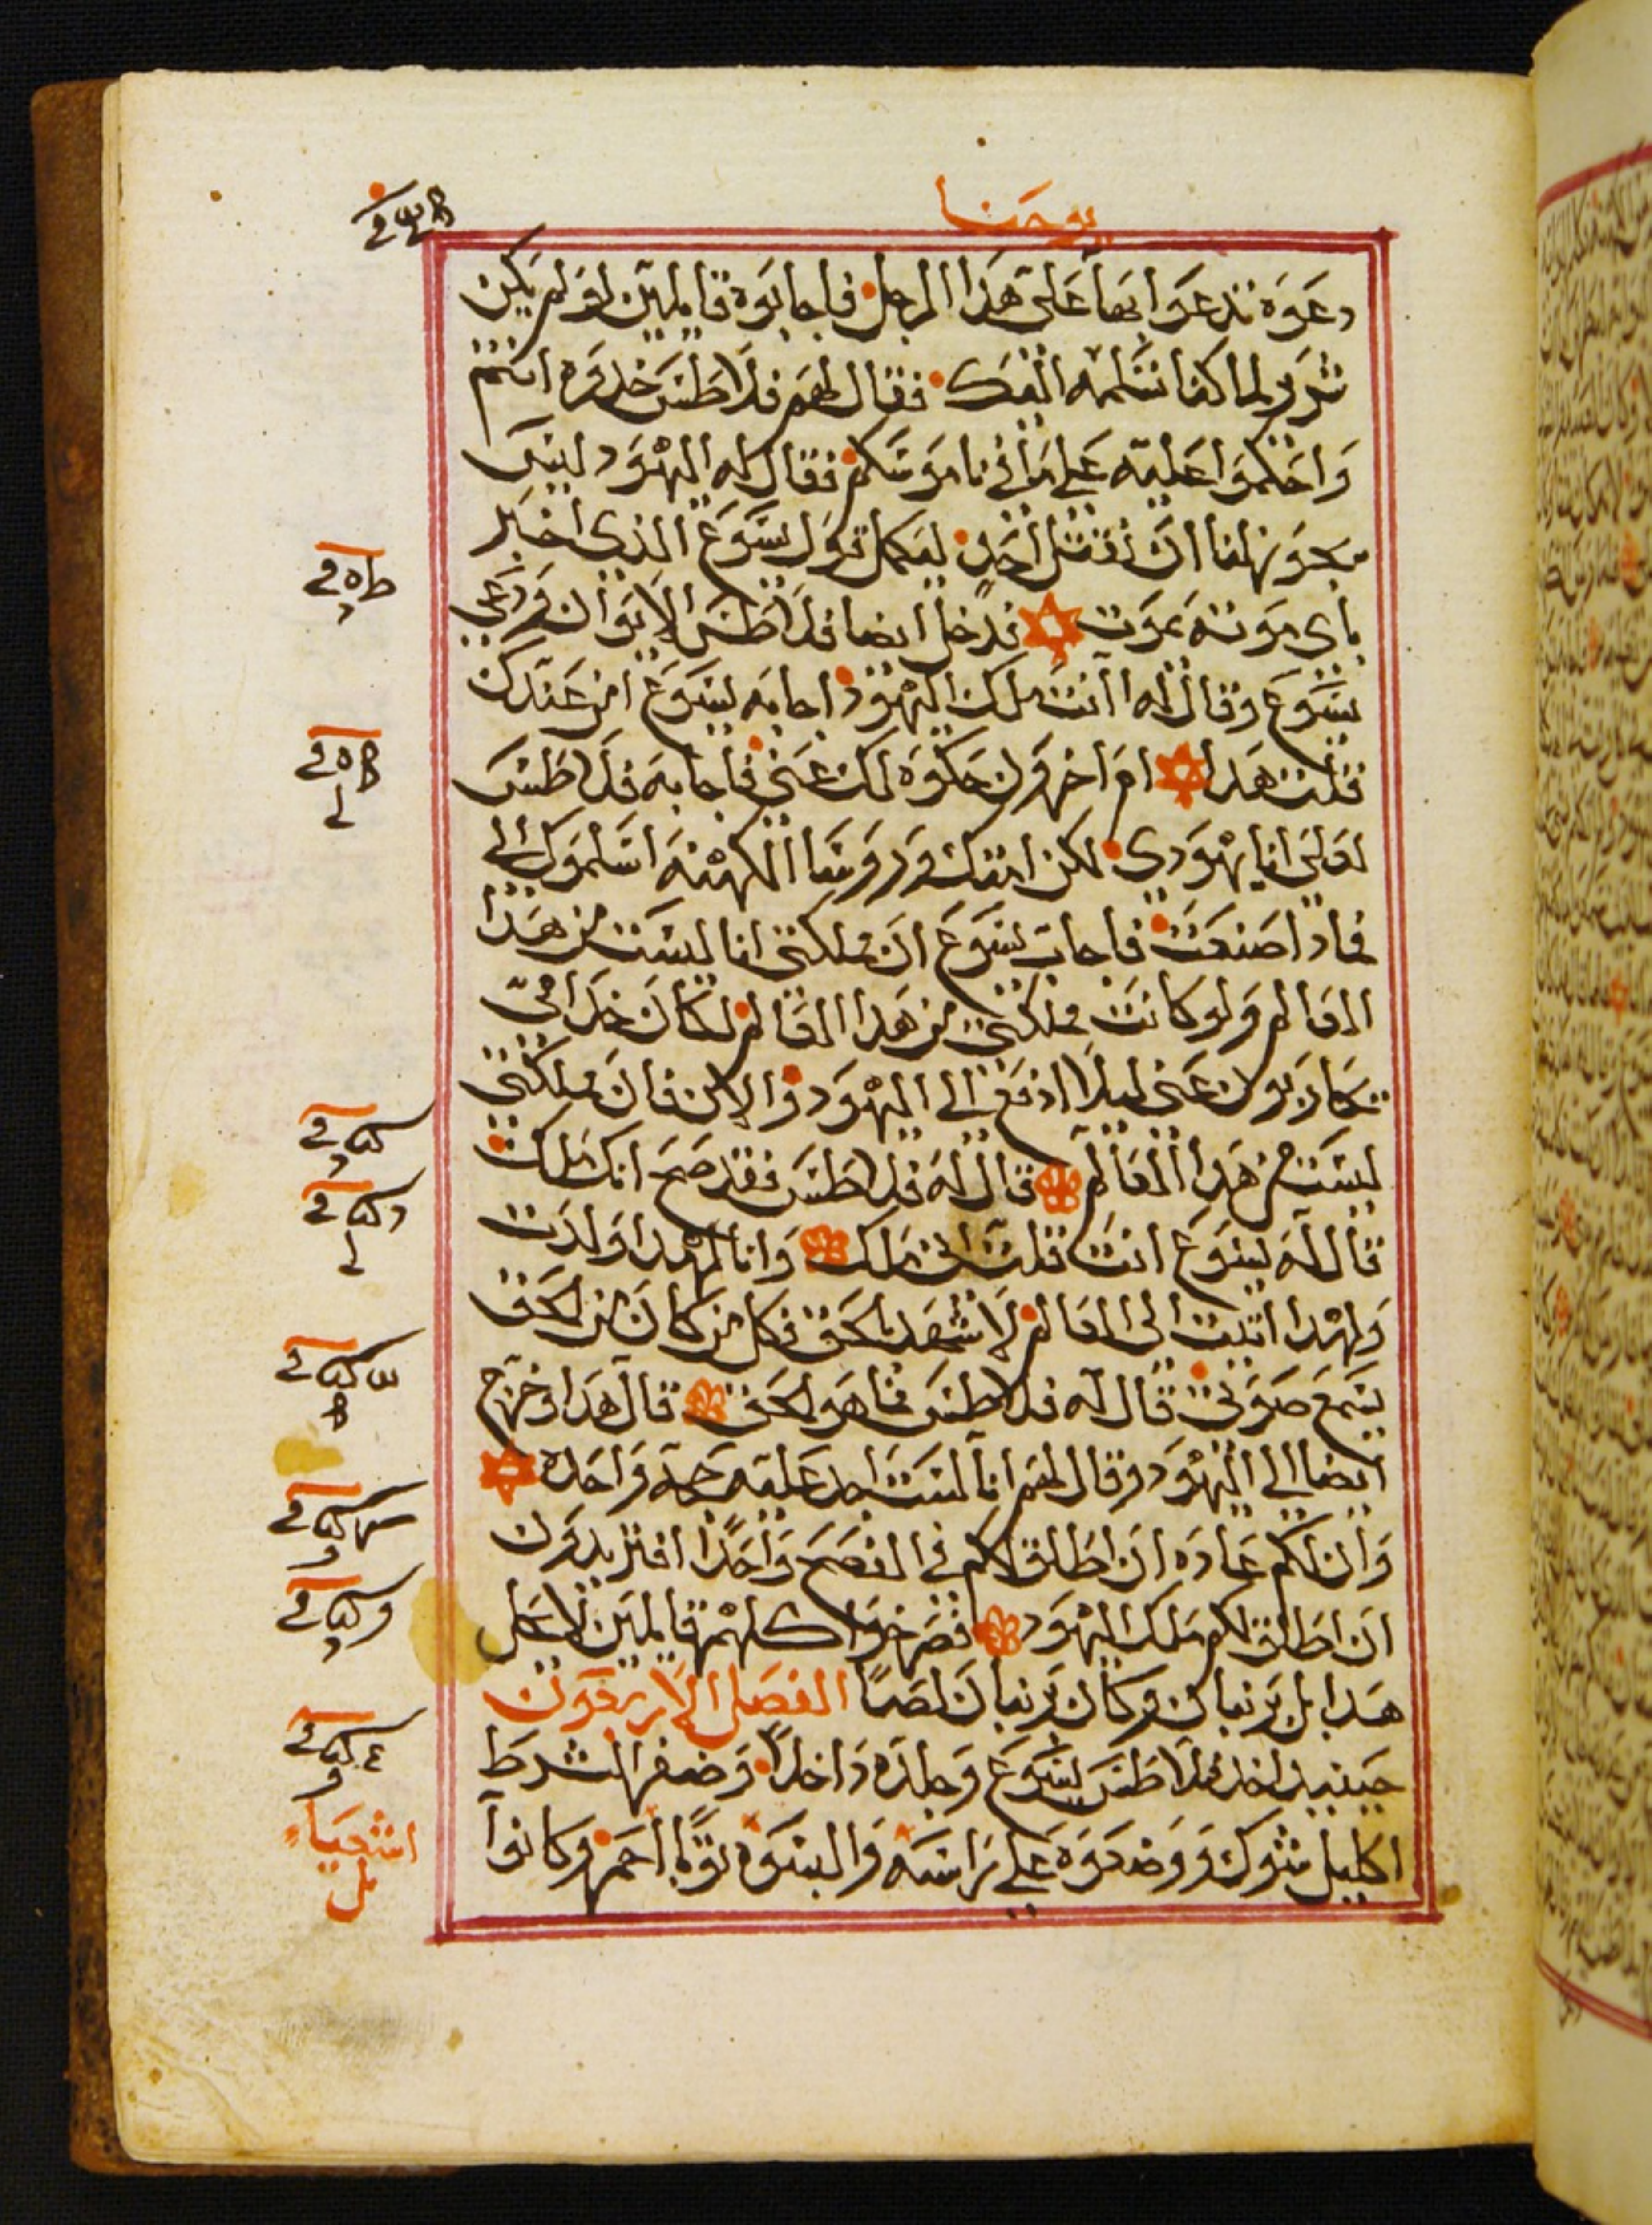 يوحنا
دعوه تدعوا بها على هذا الرجل فاجابوه قايلين لو لم يكن
شرير لما كنا نسلمه اليك فقال لهم فلاطس خدوه انتم
واحكموا عليه على ما في ناموسكم فقال له اليهود ليس
يجوز لنا ان نقتل احد ليكمل قول يسوع الذي اخبر
باي موته يموت فدخل ايضا فلاطس الايوان ودعي
يسوع وقال له اانت ملك اليهود اجابه يسوع امن عندك
قلت هدا ام اخرون حكوه لك عني فاجابه فلاطس
لعلي انا يهودي لكن امتك وروسا الكهنه اسلموك الي
فمادا صنعت فاجاب يسوع ان مملكتي انا ليست من هدا
العالم ولو كانت مملكتي من هدا العالم لكان خدامي
يحاربون عني ليلا ادفع الي اليهود والان فان مملكتي
ليست من هدا العالم قال له فلاطس فقد صح انك ملك
قال له يسوع انت قلت اني ملك وانا لهدا ولدت
ولهدا اتيت الى العالم لاشهد بالحق فكل من كان من الحق
يسمع صوتي قال له فلاطس فما هو الحق قال هدا وخرج
ايضا الي اليهود وقال لهم انا لست اجد عليه حجه واحده
وان لكم عاده ان اطلق لكم في الفصح واحدا افتريدون
ان اطلق لكم ملك اليهود فصرخوا كلهم قايلين لا يحل
هدا بل برنبان وكان برنبان لصا الفصل الاربعون
حينيد اخد فلاطس يسوع وجلده داخلا وضفر الشرط
اكليل شوك ووضعوه على راسه والبسوه توبا احمر وكانوا
اشعيا